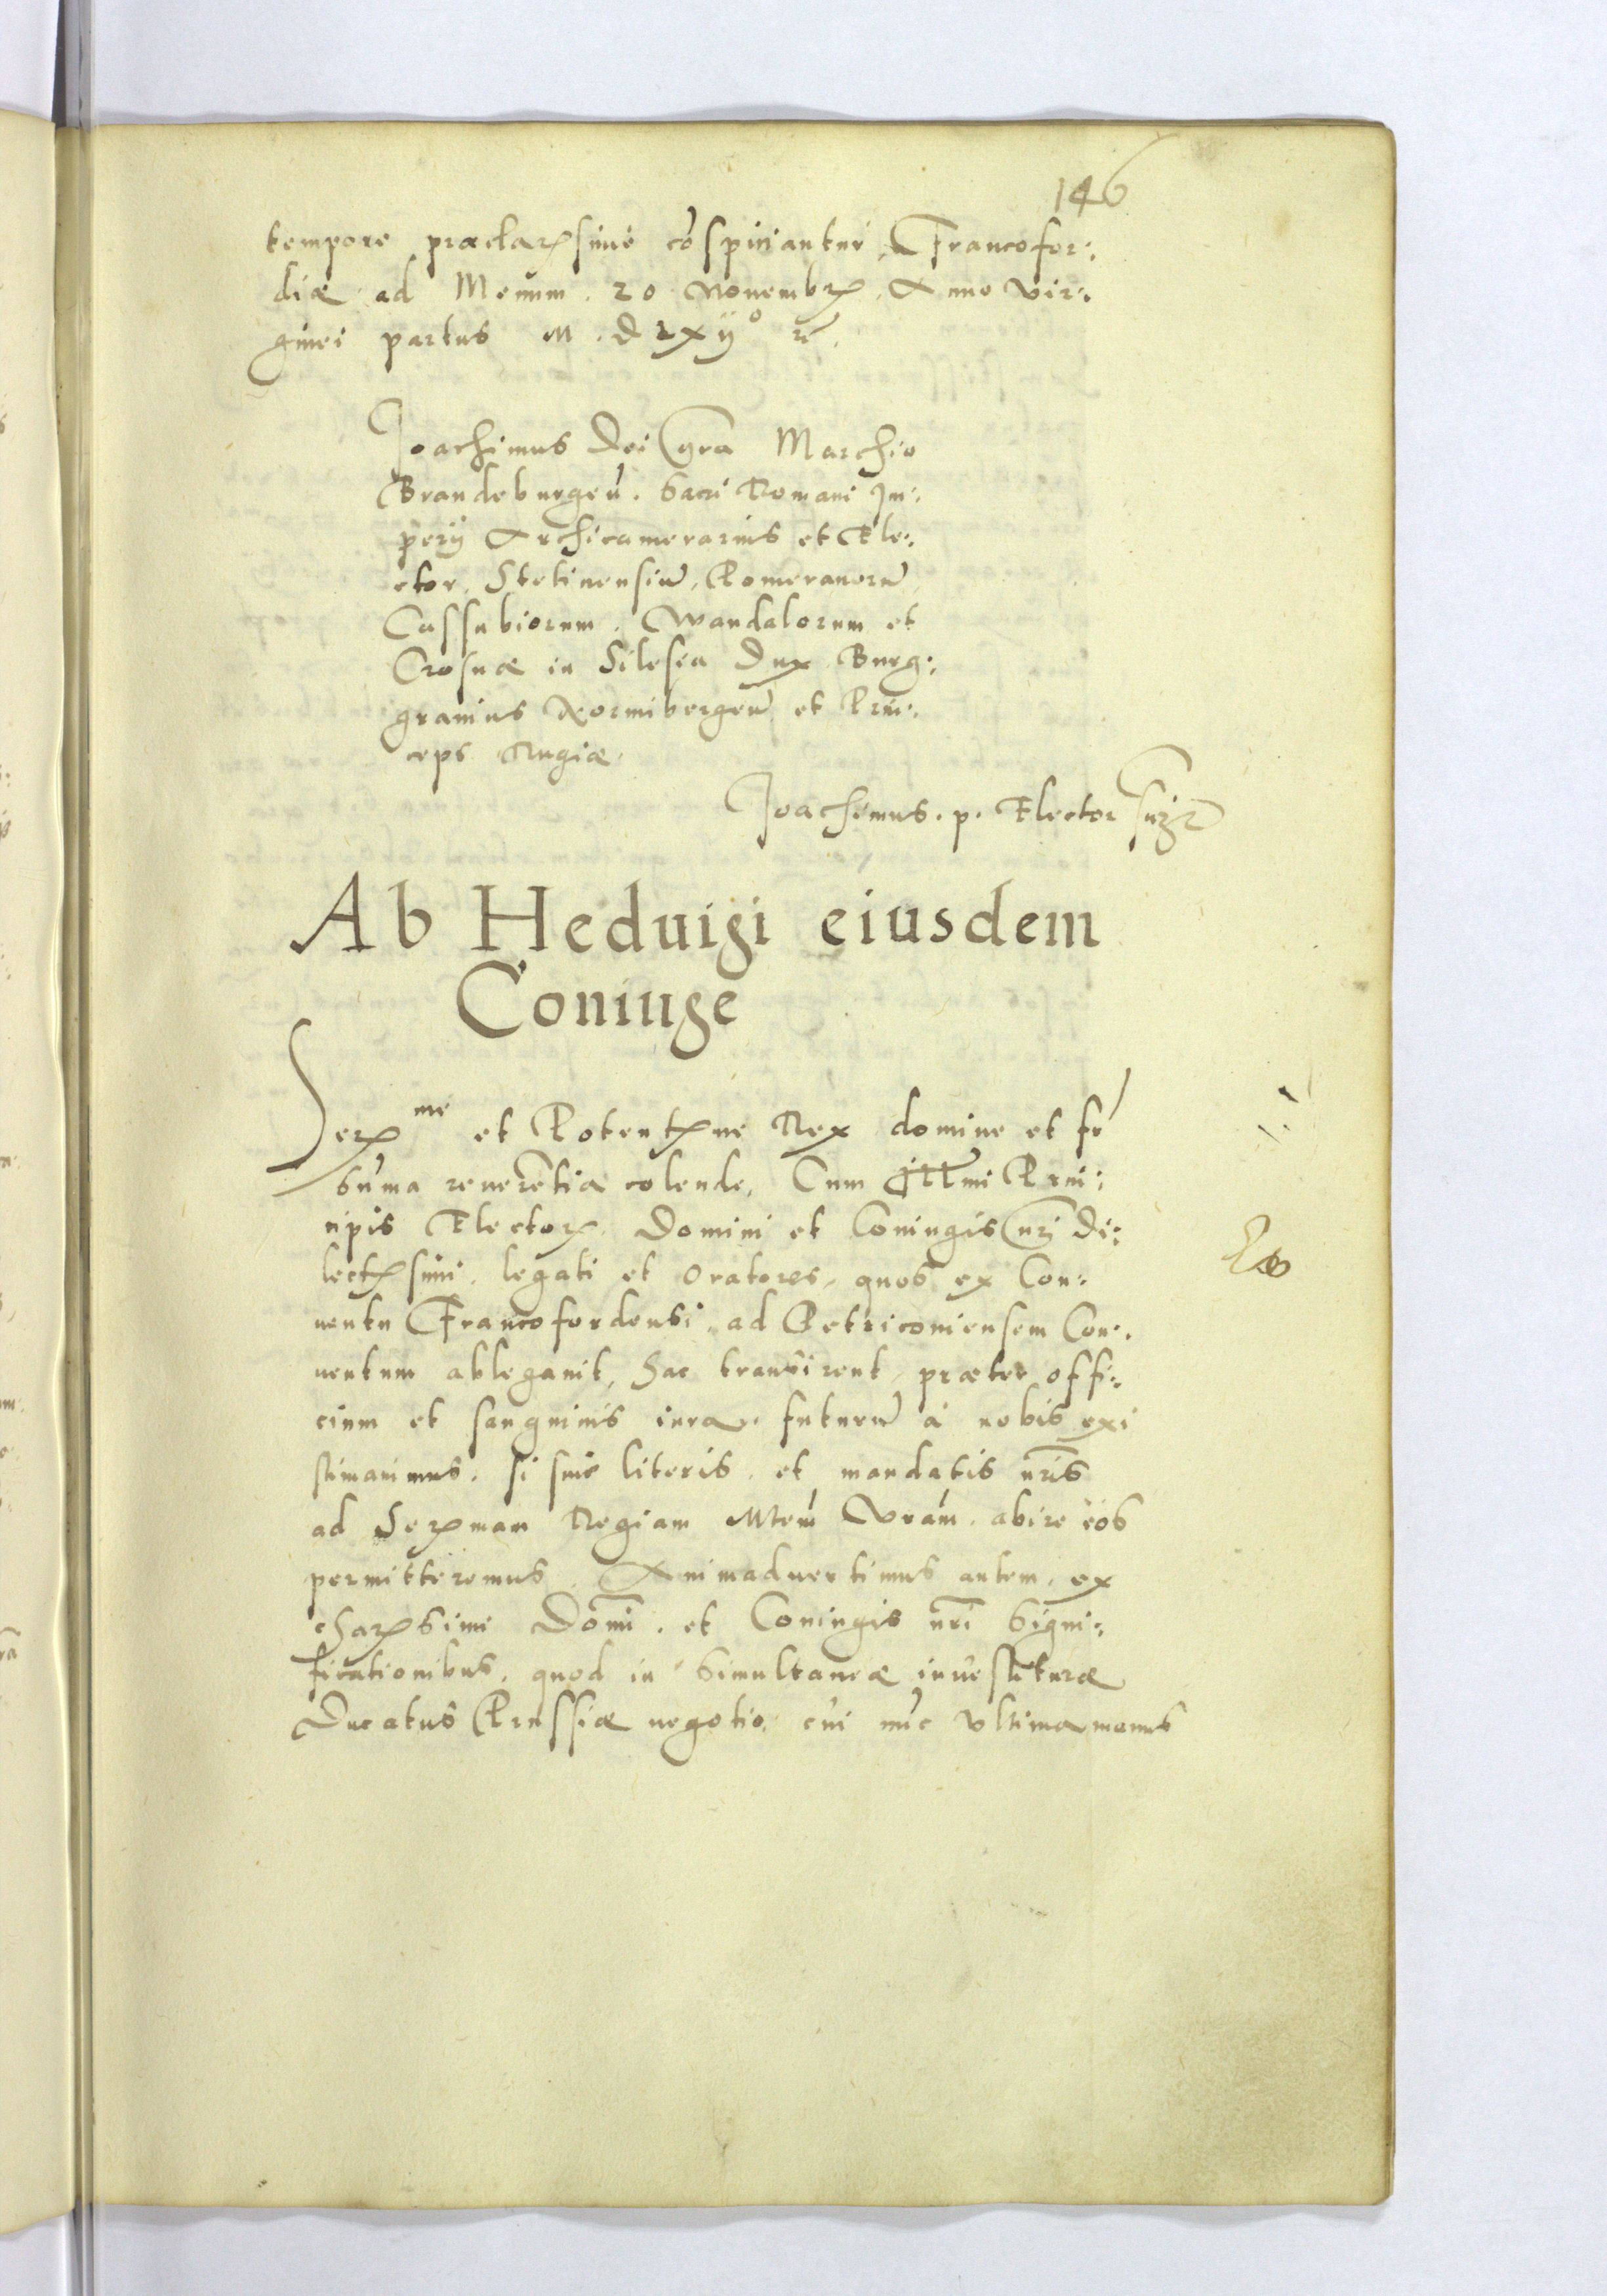 146
tempore præclarissime cōspiciantur, Francofor:
diæ ad Menum. 20 Nouembris. Anno vir:
ginei partus M. D LXIJ° ꝛc.
Joachimus Dei gra Marchio
Brandeburgeñ. Sacri Romani Im:
perij Archicamerarius et Ele:
ctor, Stetinensiū, Pomeranorū
Cassubiorum, Wandalorum et
Crosnæ in Silesia Dux Burg:
grauius Norinbergeñ et Prin:
ceps Rugiæ.
Joachimus. p. Elector
Ab Heduigi eiusdem
Coniuge
Serme et Potentme Rex domine et fr
sūma reuerētia colende, Cum Illmi Prin:
cipis Electoris Domini et Coniugis nri di:
lectissimi, legati et Oratores, quos ex Con:
uentu Francofordensi, ad Petriconiensem Con:
uentum ablegauit, hac transirent, præter offi:
cium et sanguinis iura, futurū à nobis exi
stimauimus, si sine literis, et mandatis nris
ad Serman Regiam Mtem Vram, abire eos
permitteremus. Animaduertimus autem, ex
charissimi Domi. et Coniugis nri signi:
ficationibus, quod in simultaneæ inuestituræ
Ducatus Prussiæ negotio, cui nūc vltima manus